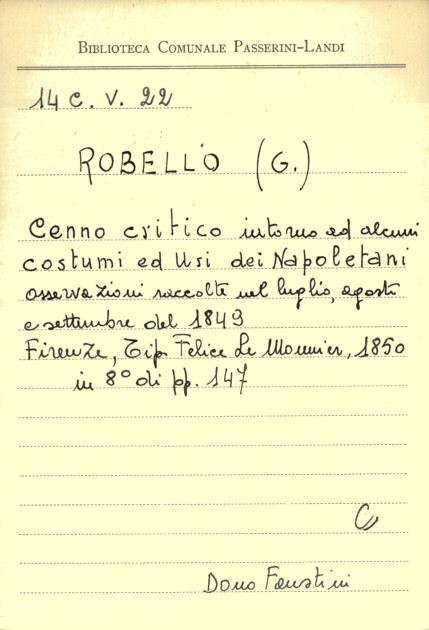 BIBLIOTECA COMUNALE PASSERINI-LANDI
14 C. V. 22
ROBELLO (G.)
Cenno critico intorno ad alcuni
costumi ed Usi dei Napoletani
osservazioni raccolte nel luglio, agosto
e settembre del 1849
Firenze, Tip. Felice Le Monnier, 1850
in 8° di pp. 147
C
Dono Faustini